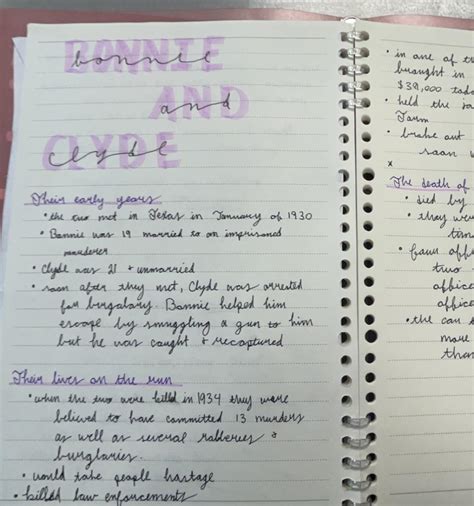 BONNIE
bonnie
AND
and
CLYDE
clyde
Their early years
• the two met in Texas in January of 1930
• Bonnie was 19 married to an imprisoned
murderer
• Clyde was 21 + unmarried
• soon after they met, Clyde was arrested
for burgalary. Bonnie helped him
escape by smuggling a gun to him
but he was caught + recaptured
Their lives on the run
• when the two were killed in 1934 they were
believed to have committed 13 murders
as well as several robberies &
burglaries.
• would take people hostage
• killed law enforcements
• in one of
brought in
$39,000
• held the
Farm
• broke out
soon
x
The death of
• died by
• they were
• four
two
•the car
more
than